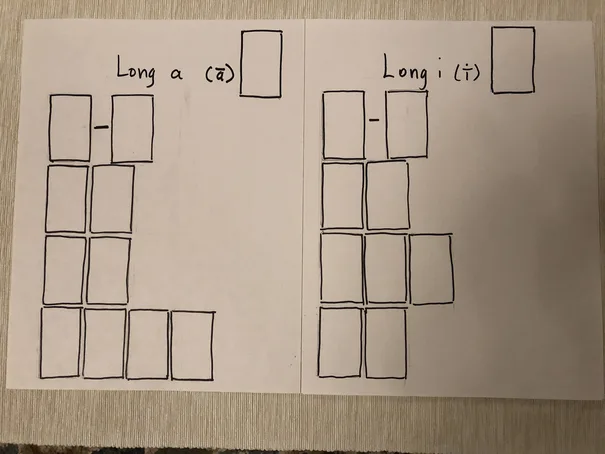 Long a (ā)
Long i (ī)